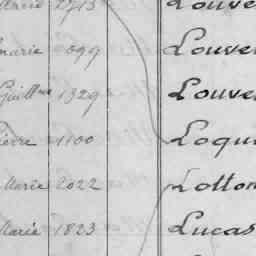 2713 Louve
marie 699 Louve
Guillme 1329 Louve
Pierre 1100 Loqu
Marie 2022 Lotton
Marie 1823 Lucas